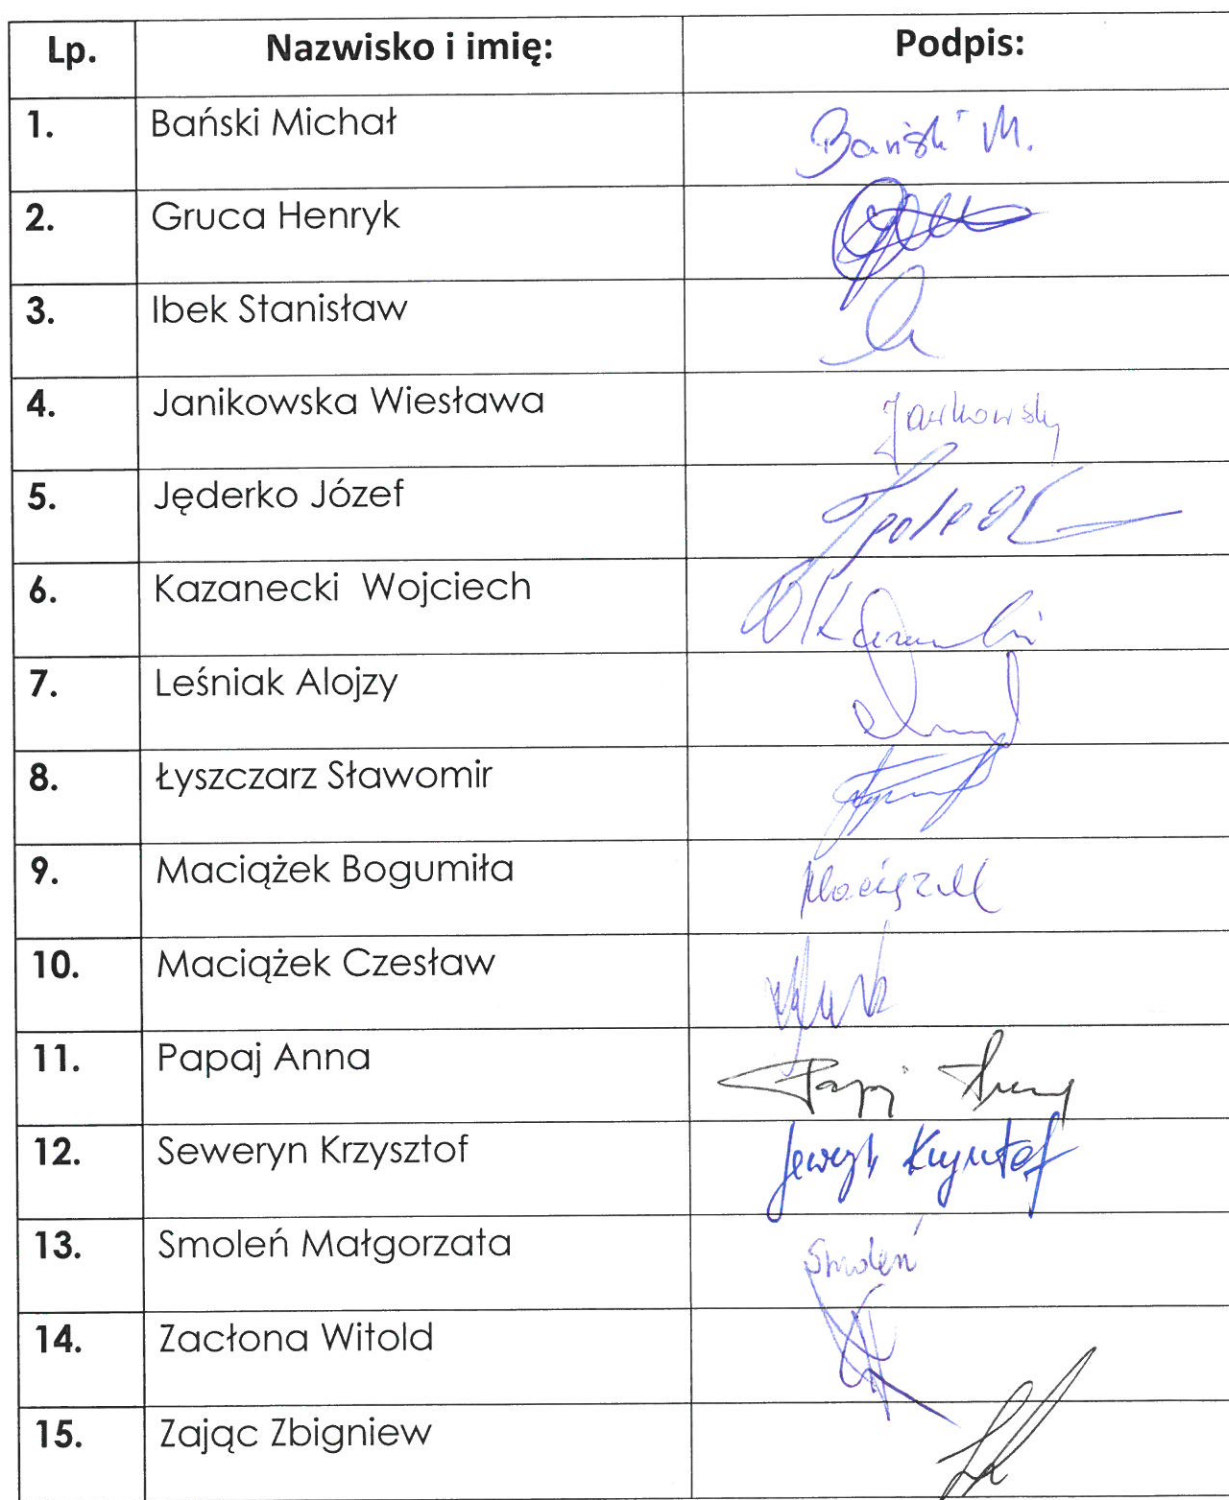 Lp. Nazwisko i imię: Podpis:
1. Bański Michał Bański M.
2. Gruca Henryk
3. Ibek Stanisław
4. Janikowska Wiesława
5. Jęderko Józef
6. Kazanecki Wojciech
7. Leśniak Alojzy
8. Łyszczarz Sławomir
9. Maciążek Bogumiła
10. Maciążek Czesław
11. Papaj Anna
12. Seweryn Krzysztof
13. Smoleń Małgorzata Smoleń
14. Zacłona Witold
15. Zając Zbigniew